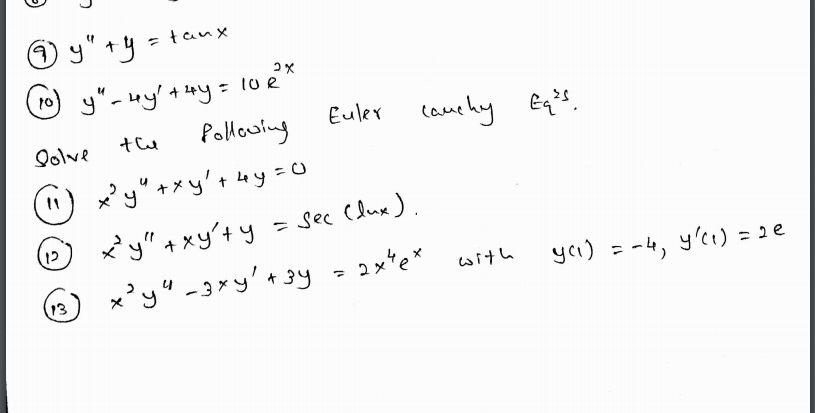 (9) y" + y = tan x
(10) y" - 4y' + 4y = 10 e^2x
Solve the following Euler Cauchy Eq^ns.
(11) x² y" + x y' + 4y = 0
(12) x² y" + x y' + y = sec (ln x).
(13) x² y" - 3x y' + 3y = 2x⁴e^x with y(1) = -4, y'(1) = 2e